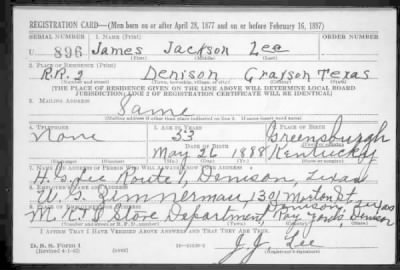 REGISTRATION CARD—(Men born on or after April 28, 1877 and on or before February 16, 1897)
SERIAL NUMBER 1. NAME (Print) ORDER NUMBER
U 896 James Jackson Lee
(First) (Middle) (Last)
2. PLACE OF RESIDENCE (Print)
R.R. 2 Denison Grayson Texas
(Number and street) (Town, township, village, or city) (County) (State)
[THE PLACE OF RESIDENCE GIVEN ON THE LINE ABOVE WILL DETERMINE LOCAL BOARD
JURISDICTION; LINE 2 OF REGISTRATION CERTIFICATE WILL BE IDENTICAL]
3. MAILING ADDRESS
Same
[Mailing address if other than place indicated on line 2. If same insert word same]
4. TELEPHONE 5. AGE IN YEARS 6. PLACE OF BIRTH
None 53 Greensburgh
DATE OF BIRTH (Town or county)
May 26 1888 Kentucky
7. NAME AND ADDRESS OF PERSON WHO WILL ALWAYS KNOW YOUR ADDRESS
Lee Route 1, Denison, Texas
8. EMPLOYER'S NAME AND ADDRESS
Zimmerman, 1301 Morton St
Denison, Texas
9. PLACE OF EMPLOYMENT OR BUSINESS
M. K. T. Store Department, Ray Yards, Denison
I AFFIRM THAT I HAVE VERIFIED ABOVE ANSWERS AND THAT THEY ARE TRUE.
D. S. S. Form 1
(Revised 4-1-42) (over)
J. J. Lee